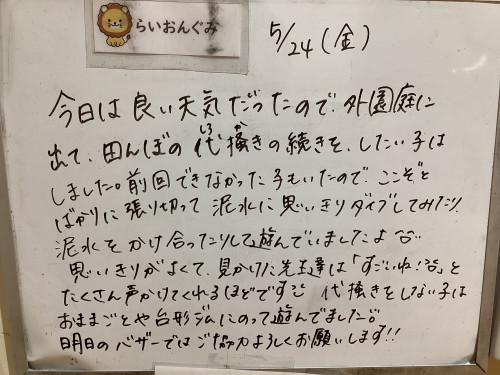 らいおんぐみ
5/24(金)
今日は良い天気だったので、外園庭に
出て、田んぼの代掻きの続きを、したい子は
しました。前回できなかった子もいたので、ここぞと
ばかりに張り切って泥水に思いきりダイブしてみたり、
泥水をかけ合ったりして遊んでいましたよ
思いきりがよくて、見かけた先生達は「すごいね!」と
たくさん声かけてくれるほどです 代掻きをしない子は
おままごとや台形ジムにのって遊んでました。
明日のバザーではご協力よろしくお願いします!!